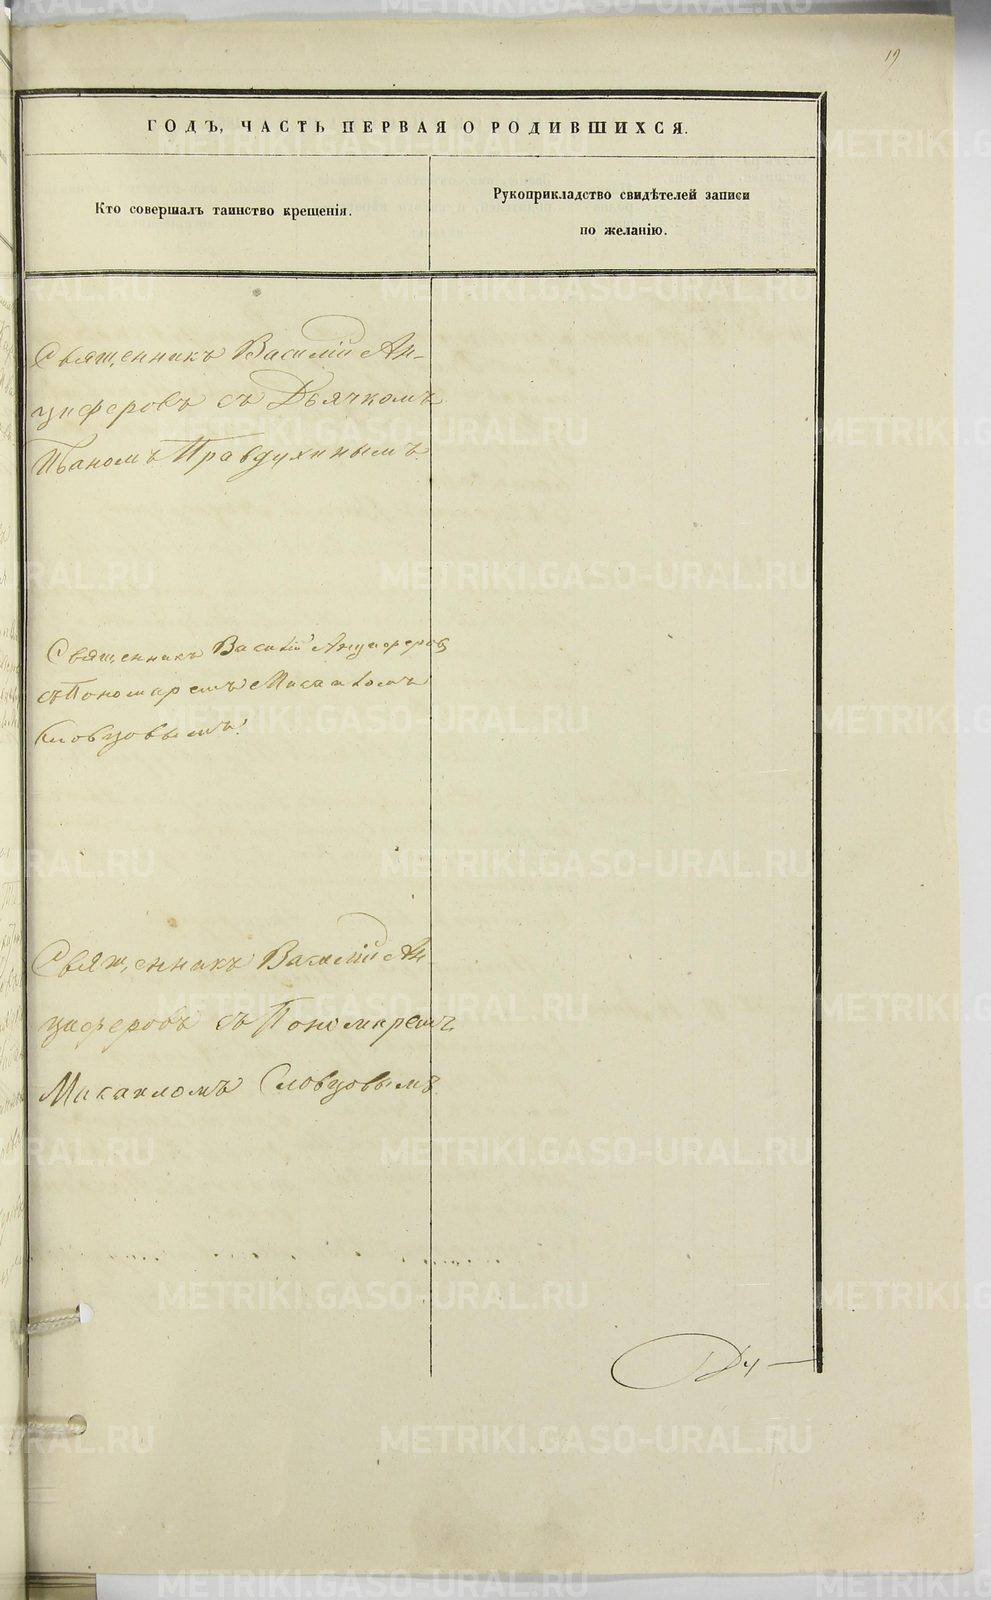 19
ГОДЪ, ЧАСТЬ ПЕРВАЯ О РОДИВШИХСЯ.
Кто совершалъ таинство крещенія.
Рукоприкладство свидѣтелей записи
по желанію.
Священникъ Василій Ан-
циферовъ съ Дьячкомъ
Иваномъ Правдухинымъ.
Священникъ Василій Анциферовъ
съ Пономаремъ Михаиломъ
Словцовымъ.
Священникъ Василій Ан-
циферовъ съ Пономаремъ
Михаиломъ Словцовымъ.
METRIKI.GASO-URAL.RU